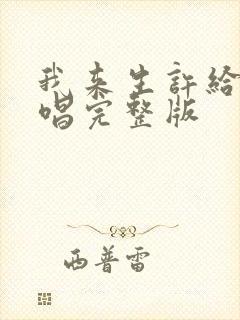 我来生許給
唱完整版
西普雷